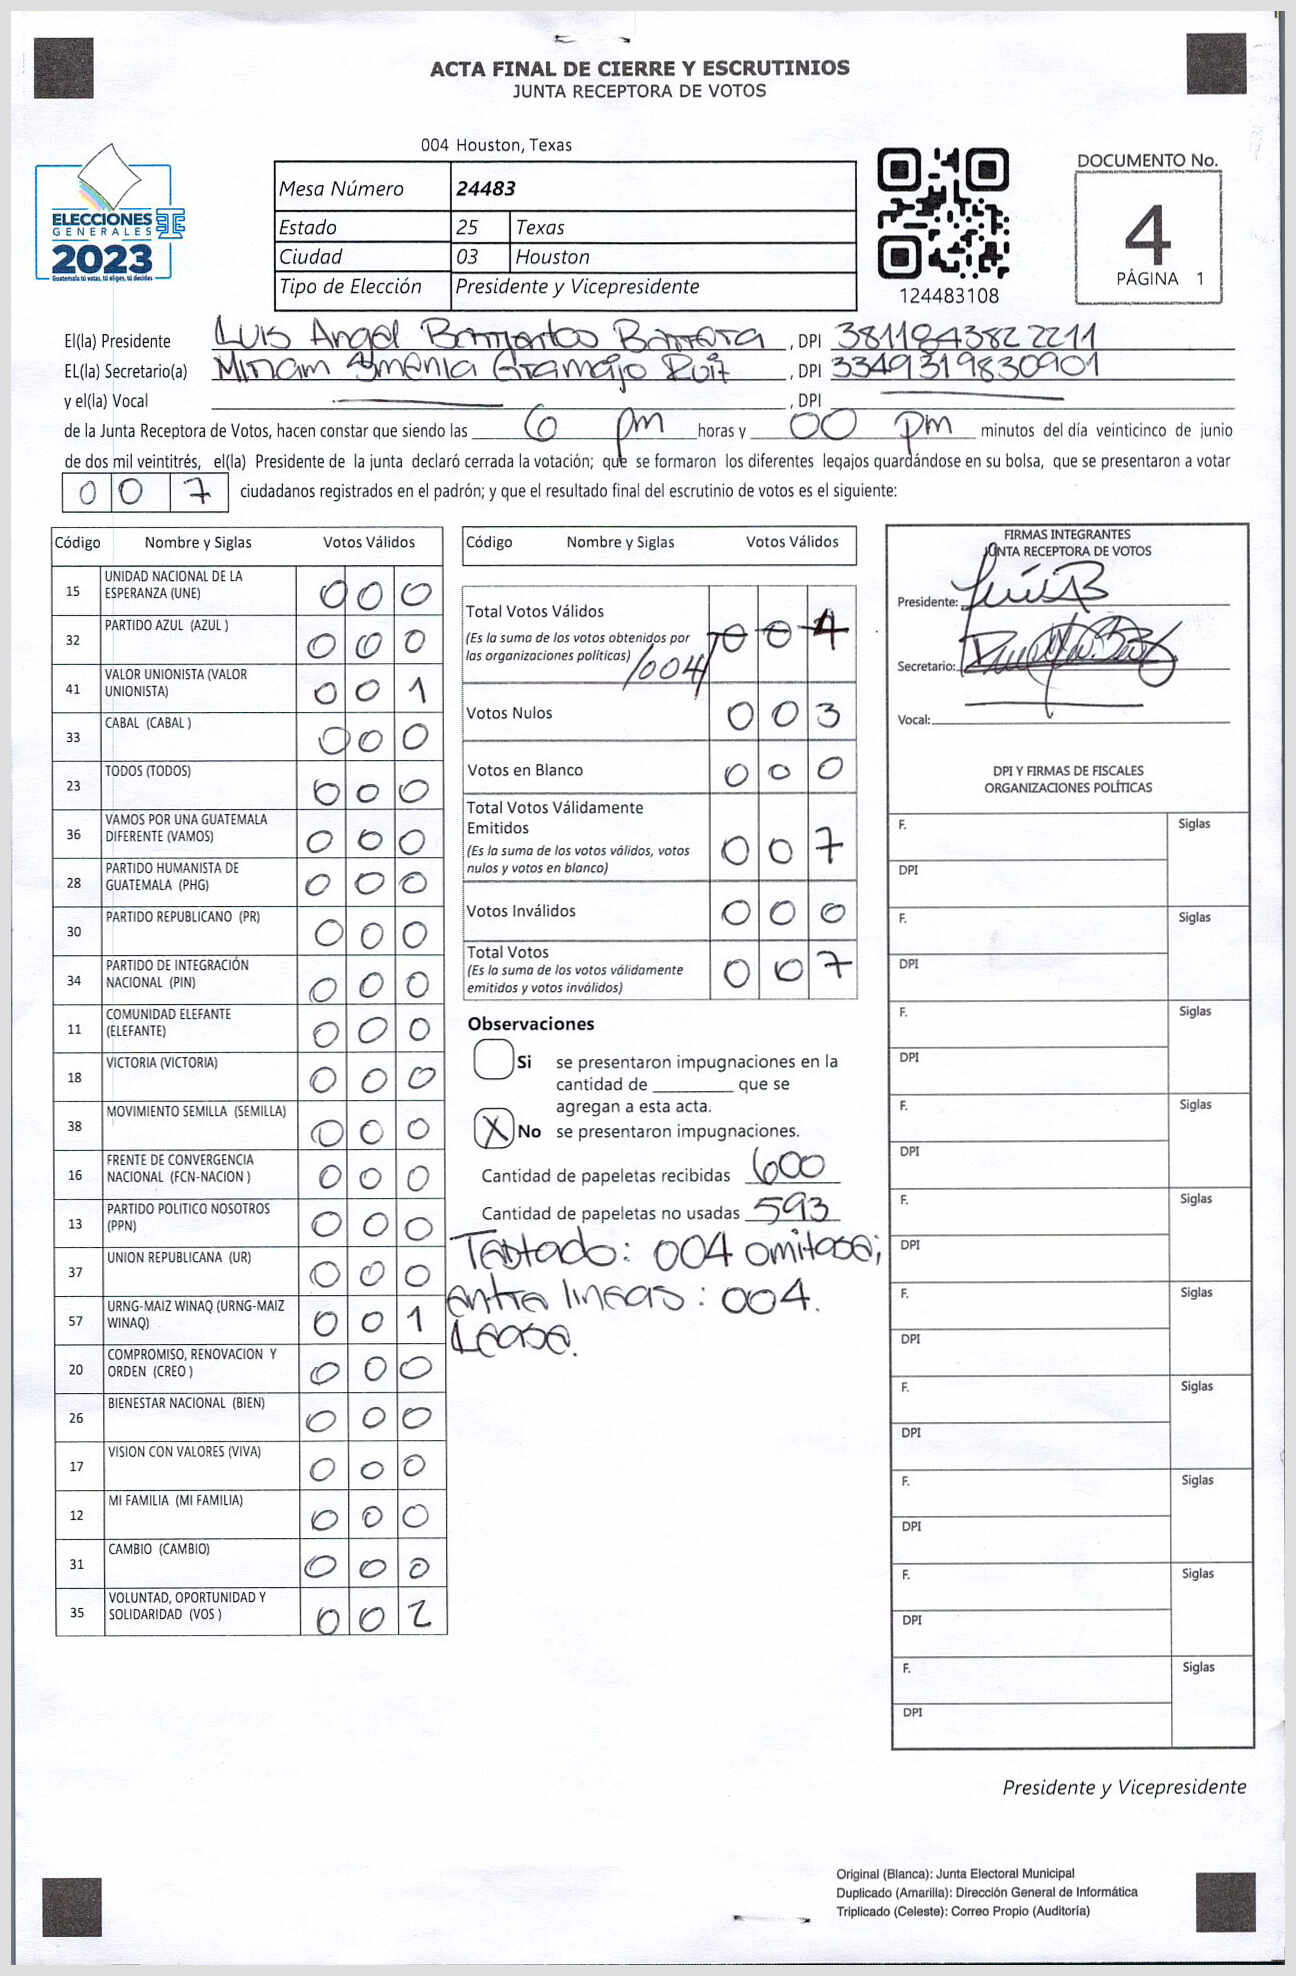 ACTA FINAL DE CIERRE Y ESCRUTINIOS
JUNTA RECEPTORA DE VOTOS
004 Houston, Texas
Mesa Número 24483
Estado 25 Texas
Ciudad 03 Houston
Tipo de Elección Presidente y Vicepresidente
ELECCIONES
GENERALES
2023
Guatemala tú votas, tú eliges, tú decides
124483108
DOCUMENTO No.
4
PÁGINA 1
El(la) Presidente Luis Angel Barrientos Barrera, DPI 3811843822211
EL(la) Secretario(a) Miriam Ymenia Gramajo Ruiz, DPI 3349319830901
y el(la) Vocal , DPI
de la Junta Receptora de Votos, hacen constar que siendo las 6 pm horas y 00 pm minutos del día veinticinco de junio
de dos mil veintitrés, el(la) Presidente de la junta declaró cerrada la votación; que se formaron los diferentes legajos guardándose en su bolsa, que se presentaron a votar
0 0 7 ciudadanos registrados en el padrón; y que el resultado final del escrutinio de votos es el siguiente:
Código Nombre y Siglas Votos Válidos
15 UNIDAD NACIONAL DE LA ESPERANZA (UNE) 0 0 0
32 PARTIDO AZUL (AZUL ) 0 0 0
41 VALOR UNIONISTA (VALOR UNIONISTA) 0 0 1
33 CABAL (CABAL ) 0 0 0
23 TODOS (TODOS) 0 0 0
36 VAMOS POR UNA GUATEMALA DIFERENTE (VAMOS) 0 0 0
28 PARTIDO HUMANISTA DE GUATEMALA (PHG) 0 0 0
30 PARTIDO REPUBLICANO (PR) 0 0 0
34 PARTIDO DE INTEGRACIÓN NACIONAL (PIN) 0 0 0
11 COMUNIDAD ELEFANTE (ELEFANTE) 0 0 0
18 VICTORIA (VICTORIA) 0 0 0
38 MOVIMIENTO SEMILLA (SEMILLA) 0 0 0
16 FRENTE DE CONVERGENCIA NACIONAL (FCN-NACION ) 0 0 0
13 PARTIDO POLITICO NOSOTROS (PPN) 0 0 0
37 UNION REPUBLICANA (UR) 0 0 0
57 URNG-MAIZ WINAQ (URNG-MAIZ WINAQ) 0 0 1
20 COMPROMISO, RENOVACION Y ORDEN (CREO ) 0 0 0
26 BIENESTAR NACIONAL (BIEN) 0 0 0
17 VISION CON VALORES (VIVA) 0 0 0
12 MI FAMILIA (MI FAMILIA) 0 0 0
31 CAMBIO (CAMBIO) 0 0 0
35 VOLUNTAD, OPORTUNIDAD Y SOLIDARIDAD (VOS ) 0 0 2
Código Nombre y Siglas Votos Válidos
Total Votos Válidos 0 0 4
(Es la suma de los votos obtenidos por
las organizaciones políticas) /004/
Votos Nulos 0 0 3
Votos en Blanco 0 0 0
Total Votos Válidamente
Emitidos 0 0 7
(Es la suma de los votos válidos, votos
nulos y votos en blanco)
Votos Inválidos 0 0 0
Total Votos 0 0 7
(Es la suma de los votos válidamente
emitidos y votos inválidos)
Observaciones
Si se presentaron impugnaciones en la
cantidad de ________ que se
agregan a esta acta.
X No se presentaron impugnaciones.
Cantidad de papeletas recibidas 600
Cantidad de papeletas no usadas 593
Testado: 004 omitase;
entre lineas: 004.
Lease.
FIRMAS INTEGRANTES
JUNTA RECEPTORA DE VOTOS
Presidente:
Secretario:
Vocal:
DPI Y FIRMAS DE FISCALES
ORGANIZACIONES POLÍTICAS
F. Siglas
DPI
F. Siglas
DPI
F. Siglas
DPI
F. Siglas
DPI
F. Siglas
DPI
F. Siglas
DPI
F. Siglas
DPI
F. Siglas
DPI
F. Siglas
DPI
F. Siglas
DPI
Presidente y Vicepresidente
Original (Blanca): Junta Electoral Municipal
Duplicado (Amarilla): Dirección General de Informática
Triplicado (Celeste): Correo Propio (Auditoría)